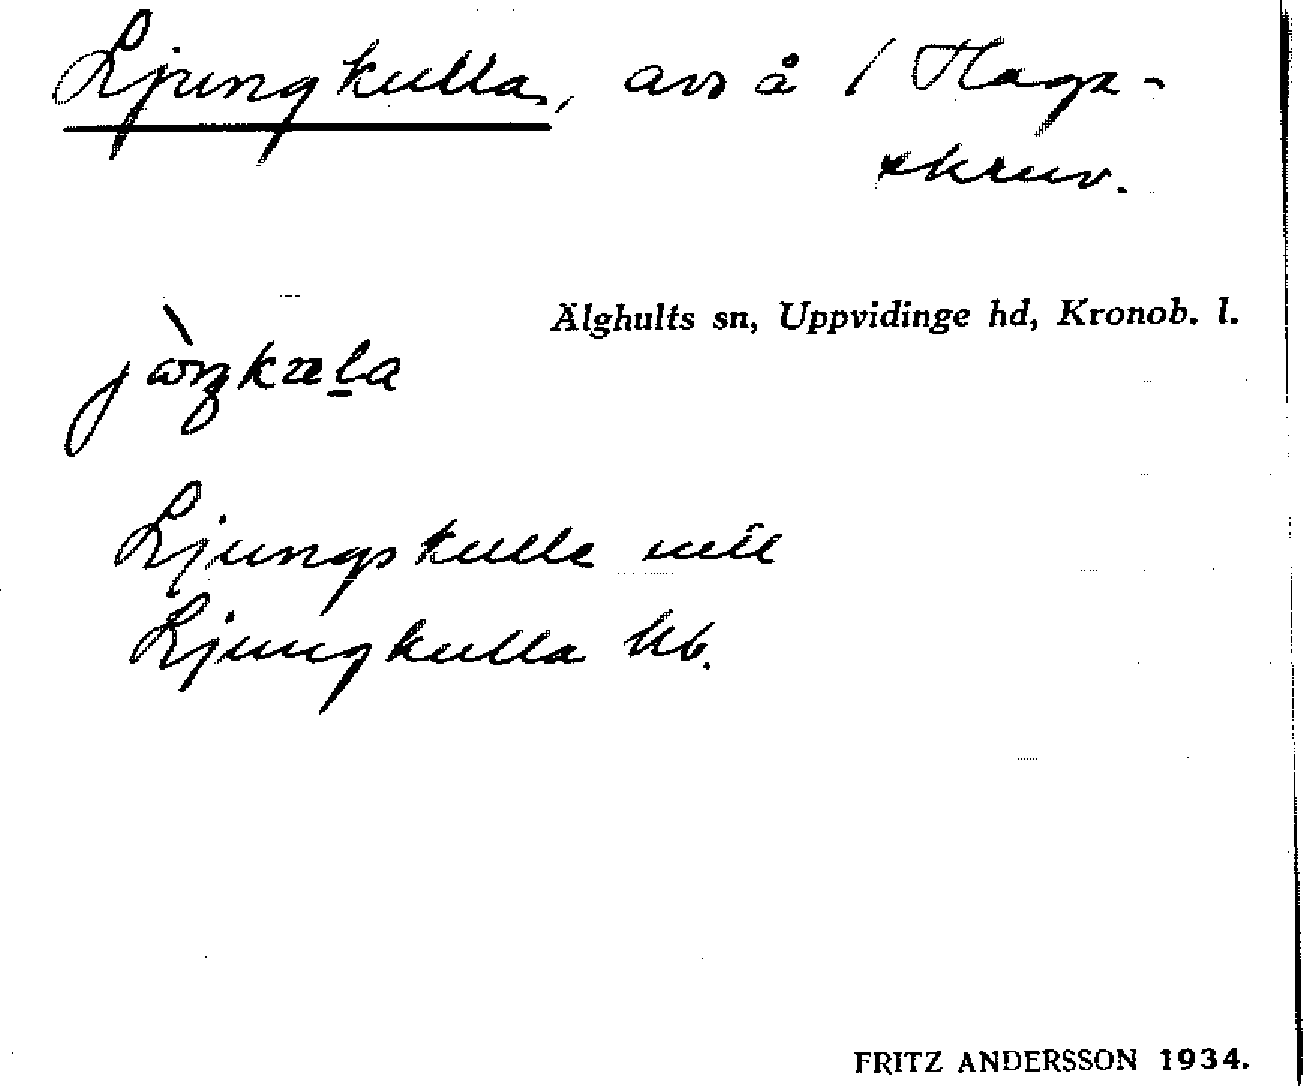 Ljungkulla, avs å 1 Haga-
skruv.
Älghults sn, Uppvidinge hd, Kronob. l.
Ljungskulla
Ljungkulla kb.
FRITZ ANDERSSON 1934.